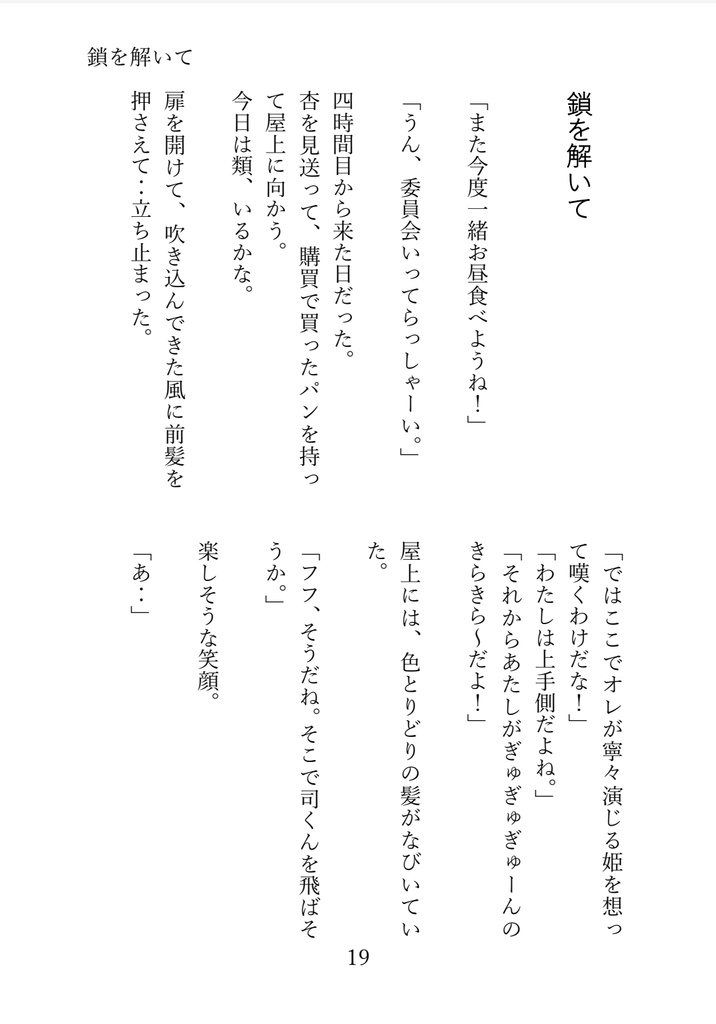 鎖を解いて
鎖を解いて
「また今度一緒お昼食べようね！」
「うん、委員会いってらっしゃーい。」
四時間目から来た日だった。
杏を見送って、購買で買ったパンを持っ
て屋上に向かう。
今日は類、いるかな。
扉を開けて、吹き込んできた風に前髪を
押さえて‥立ち止まった。
「ではここでオレが寧々演じる姫を想っ
て嘆くわけだな！」
「わたしは上手側だよね。」
「それからあたしがぎゅぎゅぎゅーんの
きらきら～だよ！」
屋上には、色とりどりの髪がなびいてい
た。
「フフ、そうだね。そこで司くんを飛ばそ
うか。」
楽しそうな笑顔。
「あ‥」
19